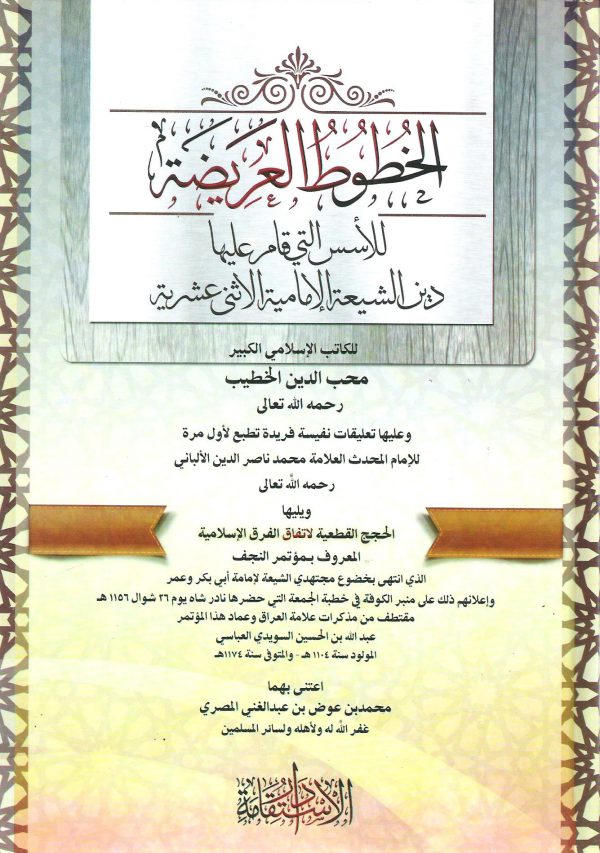 الخُطُوطُ العَرِيضَة
للأسس التي قام عليها
دين الشيعة الإمامية الاثنى عشرية
للكاتب الإسلامي الكبير
محب الدين الخطيب
رحمه الله تعالى
وعليها تعليقات نفيسة فريدة تطبع لأول مرة
للإمام المحدث العلامة محمد ناصر الدين الألباني
رحمه الله تعالى
ويليها
الحجج القطعية لاتفاق الفرق الإسلامية
المعروف بـمؤتمر النجف
الذي انتهى بخضوع مجتهدي الشيعة لإمامة أبي بكر وعمر
وإعلانهم ذلك على منبر الكوفة في خطبة الجمعة التي حضرها نادر شاه يوم ٢٦ شوال ١١٥٦ هـ
مقتطف من مذكرات علامة العراق وعماد هذا المؤتمر
عبد الله بن الحسين السويدي العباسي
المولود سنة ١١٠٤ هـ - والمتوفى سنة ١١٧٤هـ
اعتنى بهما
محمدبن عوض بن عبدالغني المصري
غفر الله له ولأهله ولسائر المسلمين
دار الاستقامة